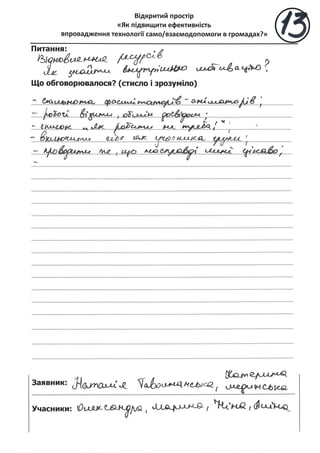 Відкритий простір
«Як підвищити ефективність
впровадження технології само/взаємодопомоги в громадах?»
13
Питання:
Відновлення ресурсів
Як знайти внутрішню мотивацію?
Що обговорювалося? (стисло і зрозуміло)
- Спільнота фасилітаторів - аніматорів;
- робочі візити, обмін досвідом;
- список "як робити не треба!";
- Включити себе як учасника групи;
- Проводити те, що насправді мені цікаво;
-
Катерина
Заявник: Наталія
Учасники: Олександра, Марина, Ніна, Аліна